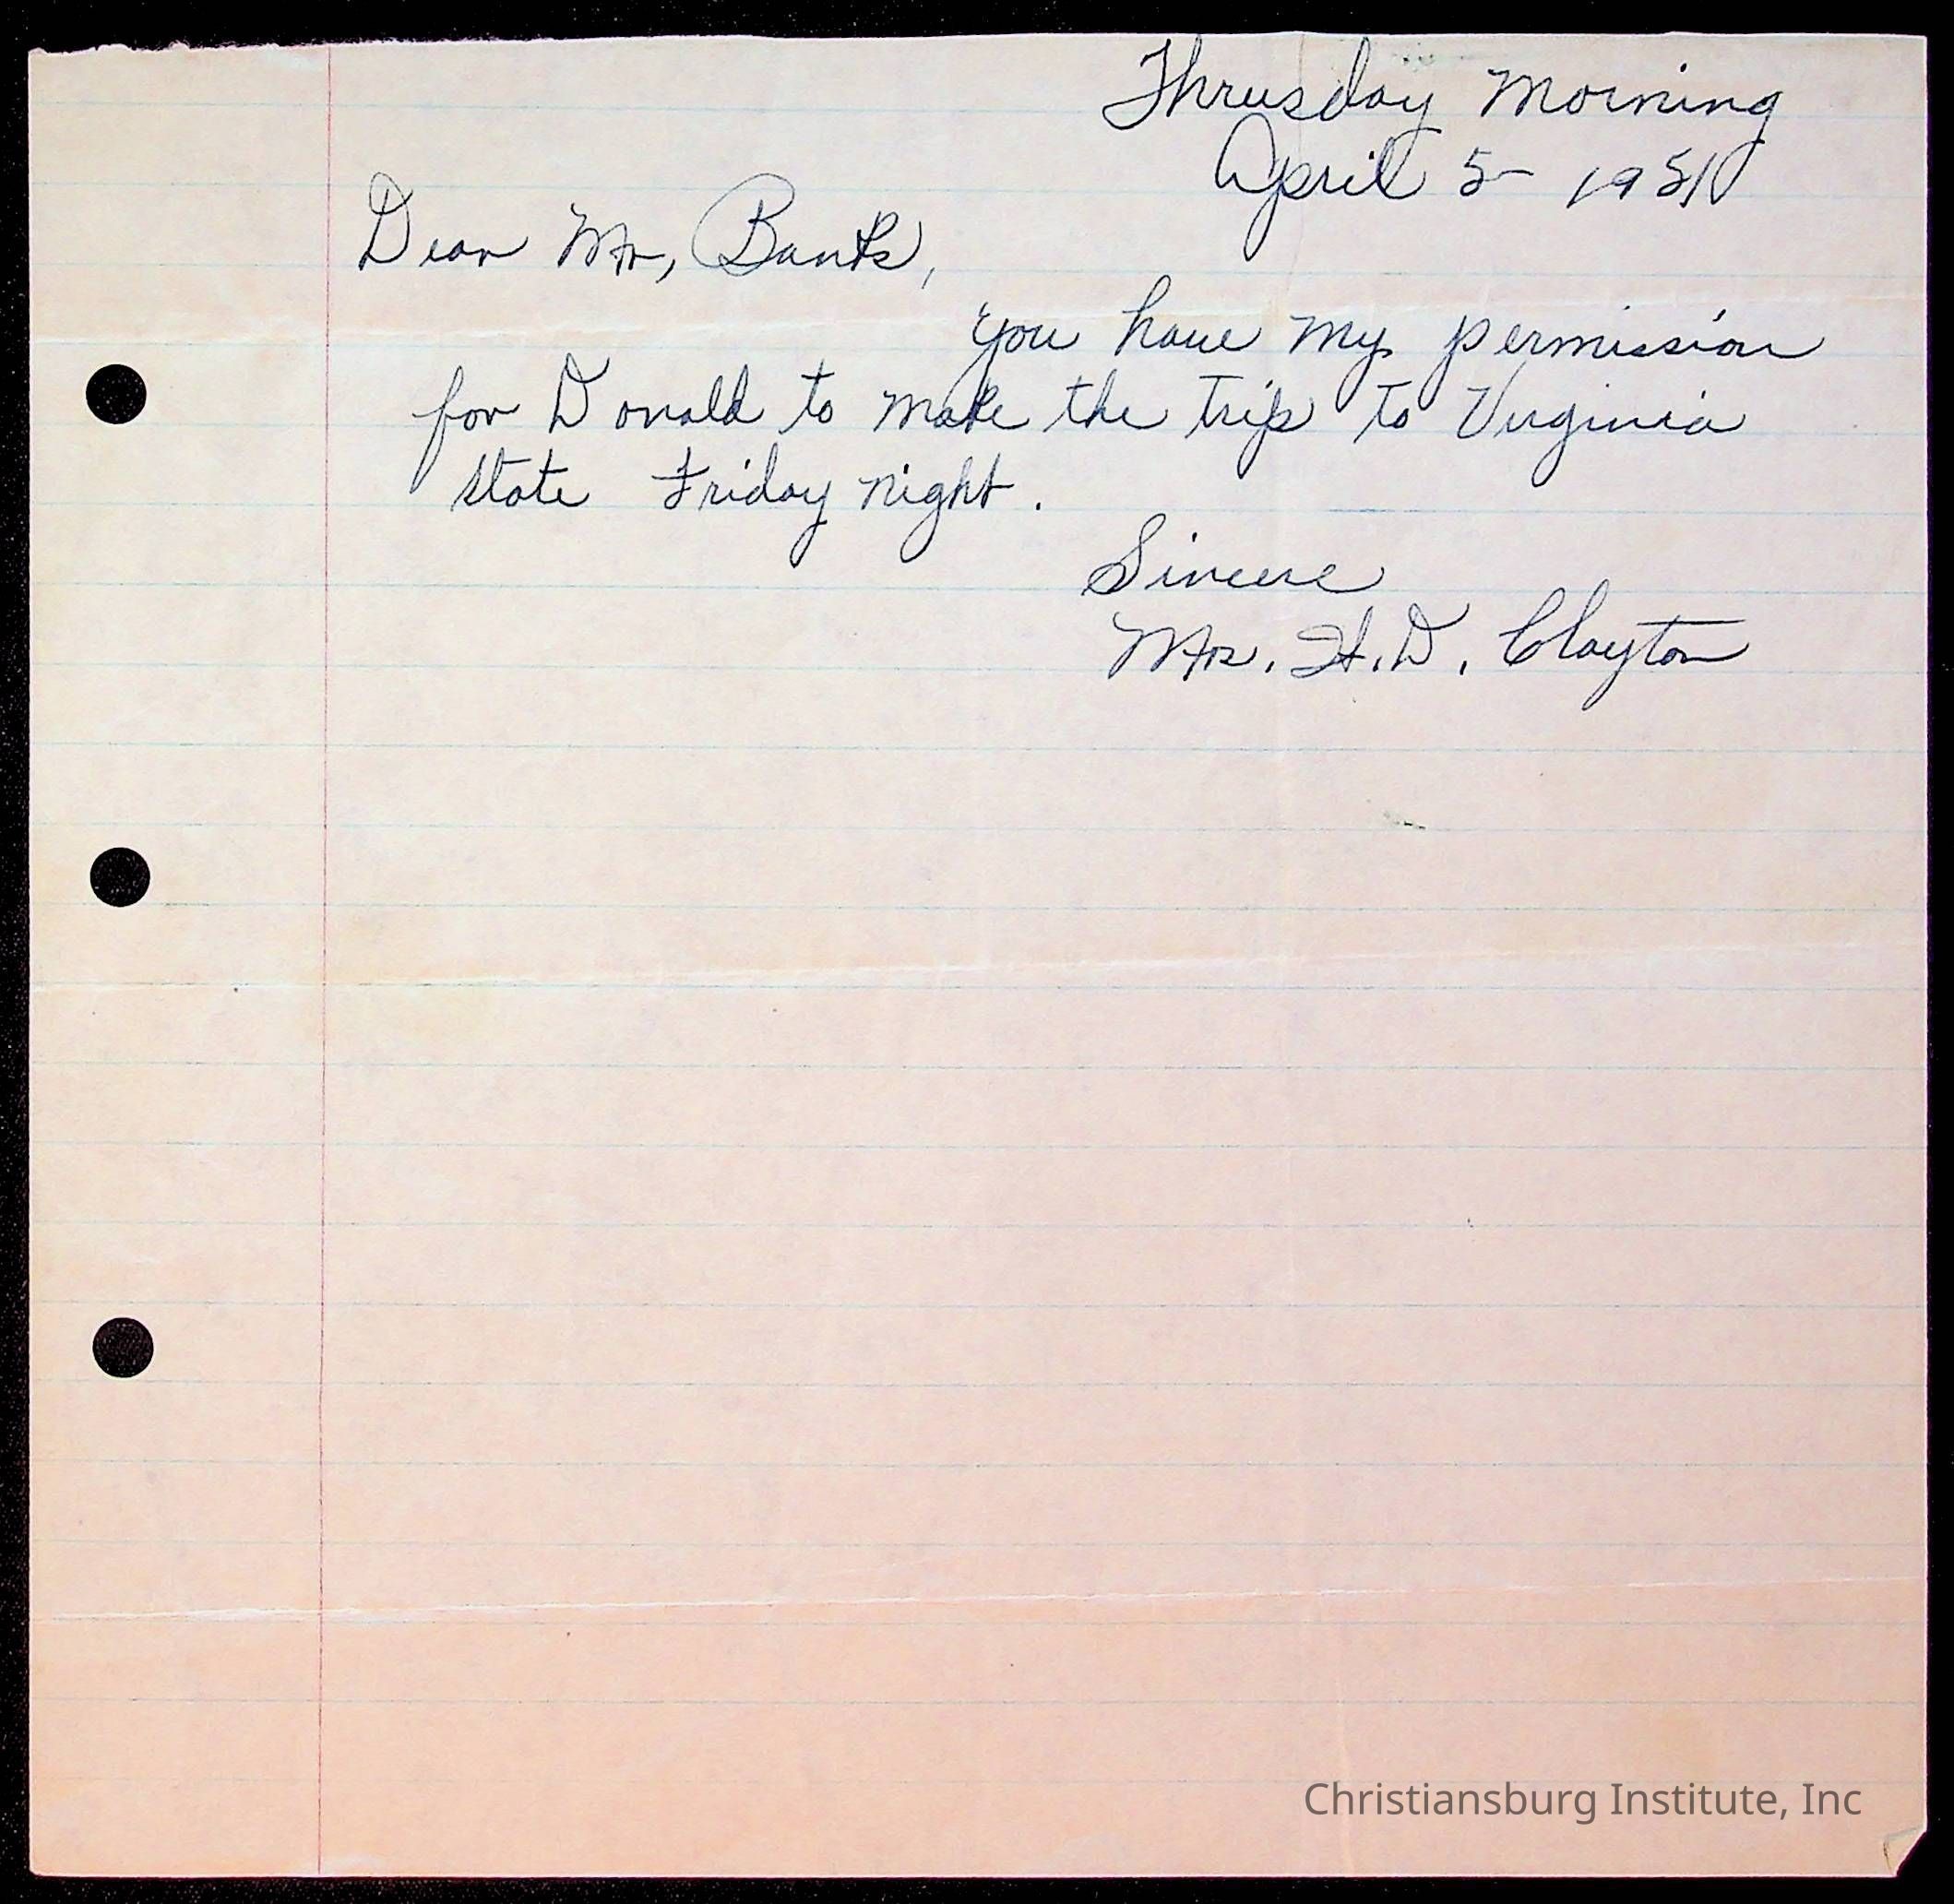 Thrusday Morning
April 5- 1951
Dear Mr, Banks,
you have my permission
for Donald to make the trip to Virginia
state Friday night.
Sincere
Mrs. H.D. Clayton
Christiansburg Institute, Inc